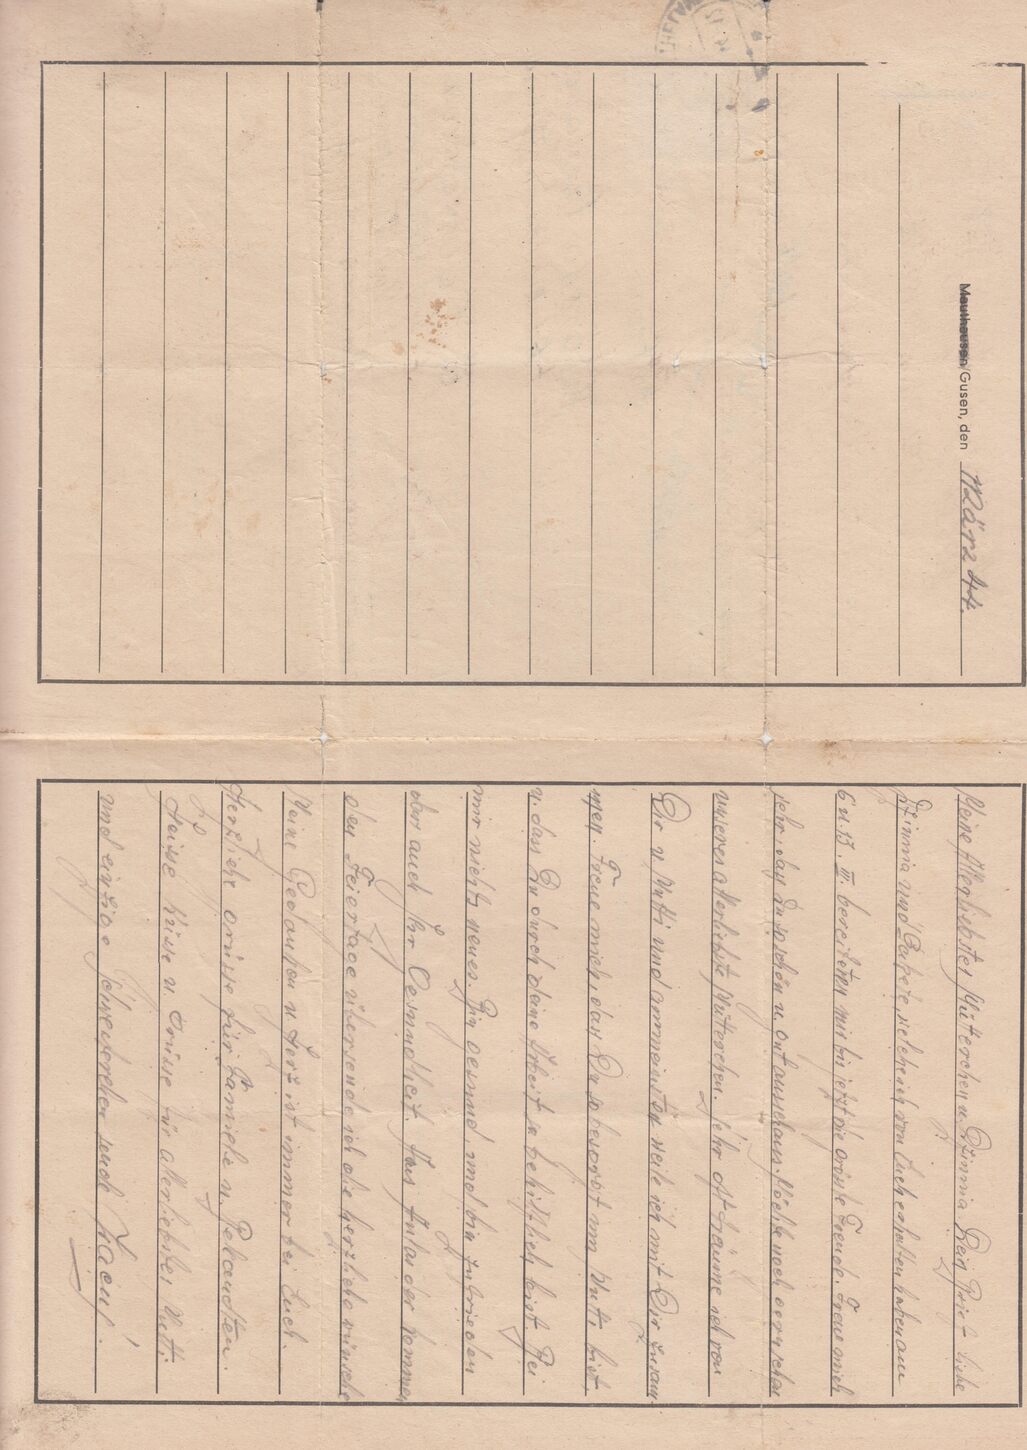 Mauthausen/Gusen, den März 44.
Meine Allerliebstes Mütterchen u. Dzinnia Dein Brief liebe
Dzinnia und Pakete, welche ich von Euch erhalten habe am
6 u 13. III. bereiteten mir bis jetzt die grösste Freude. Freue mich
sehr, das Du so schön u. gut ausschaust. Möchte noch gern sehen
unseres allerliebste Mütterchen. Sehr oft träume ich von
Dir u Mutti und vermeintlich weile ich mit Dir zusam-
men. Freue mich, das Du so besorgt um Mutti bist
u. dass Du durch deine Arbeit so behilflich bist. Bei
mir nichts neues. Bin gesund und bin zufrieden
der auch Ihr Gesundheit. Aus Anlas der kommen
den Feiertage übersende ich die herzliche wünsche
Meine Gedanken u. Herz ist immer bei Euch.
Herzliche grüsse für Familie u. Bekandten.
Heisse küsse u Grüsse für allerliebstes Mutti
und einzige Schwesterchen sende